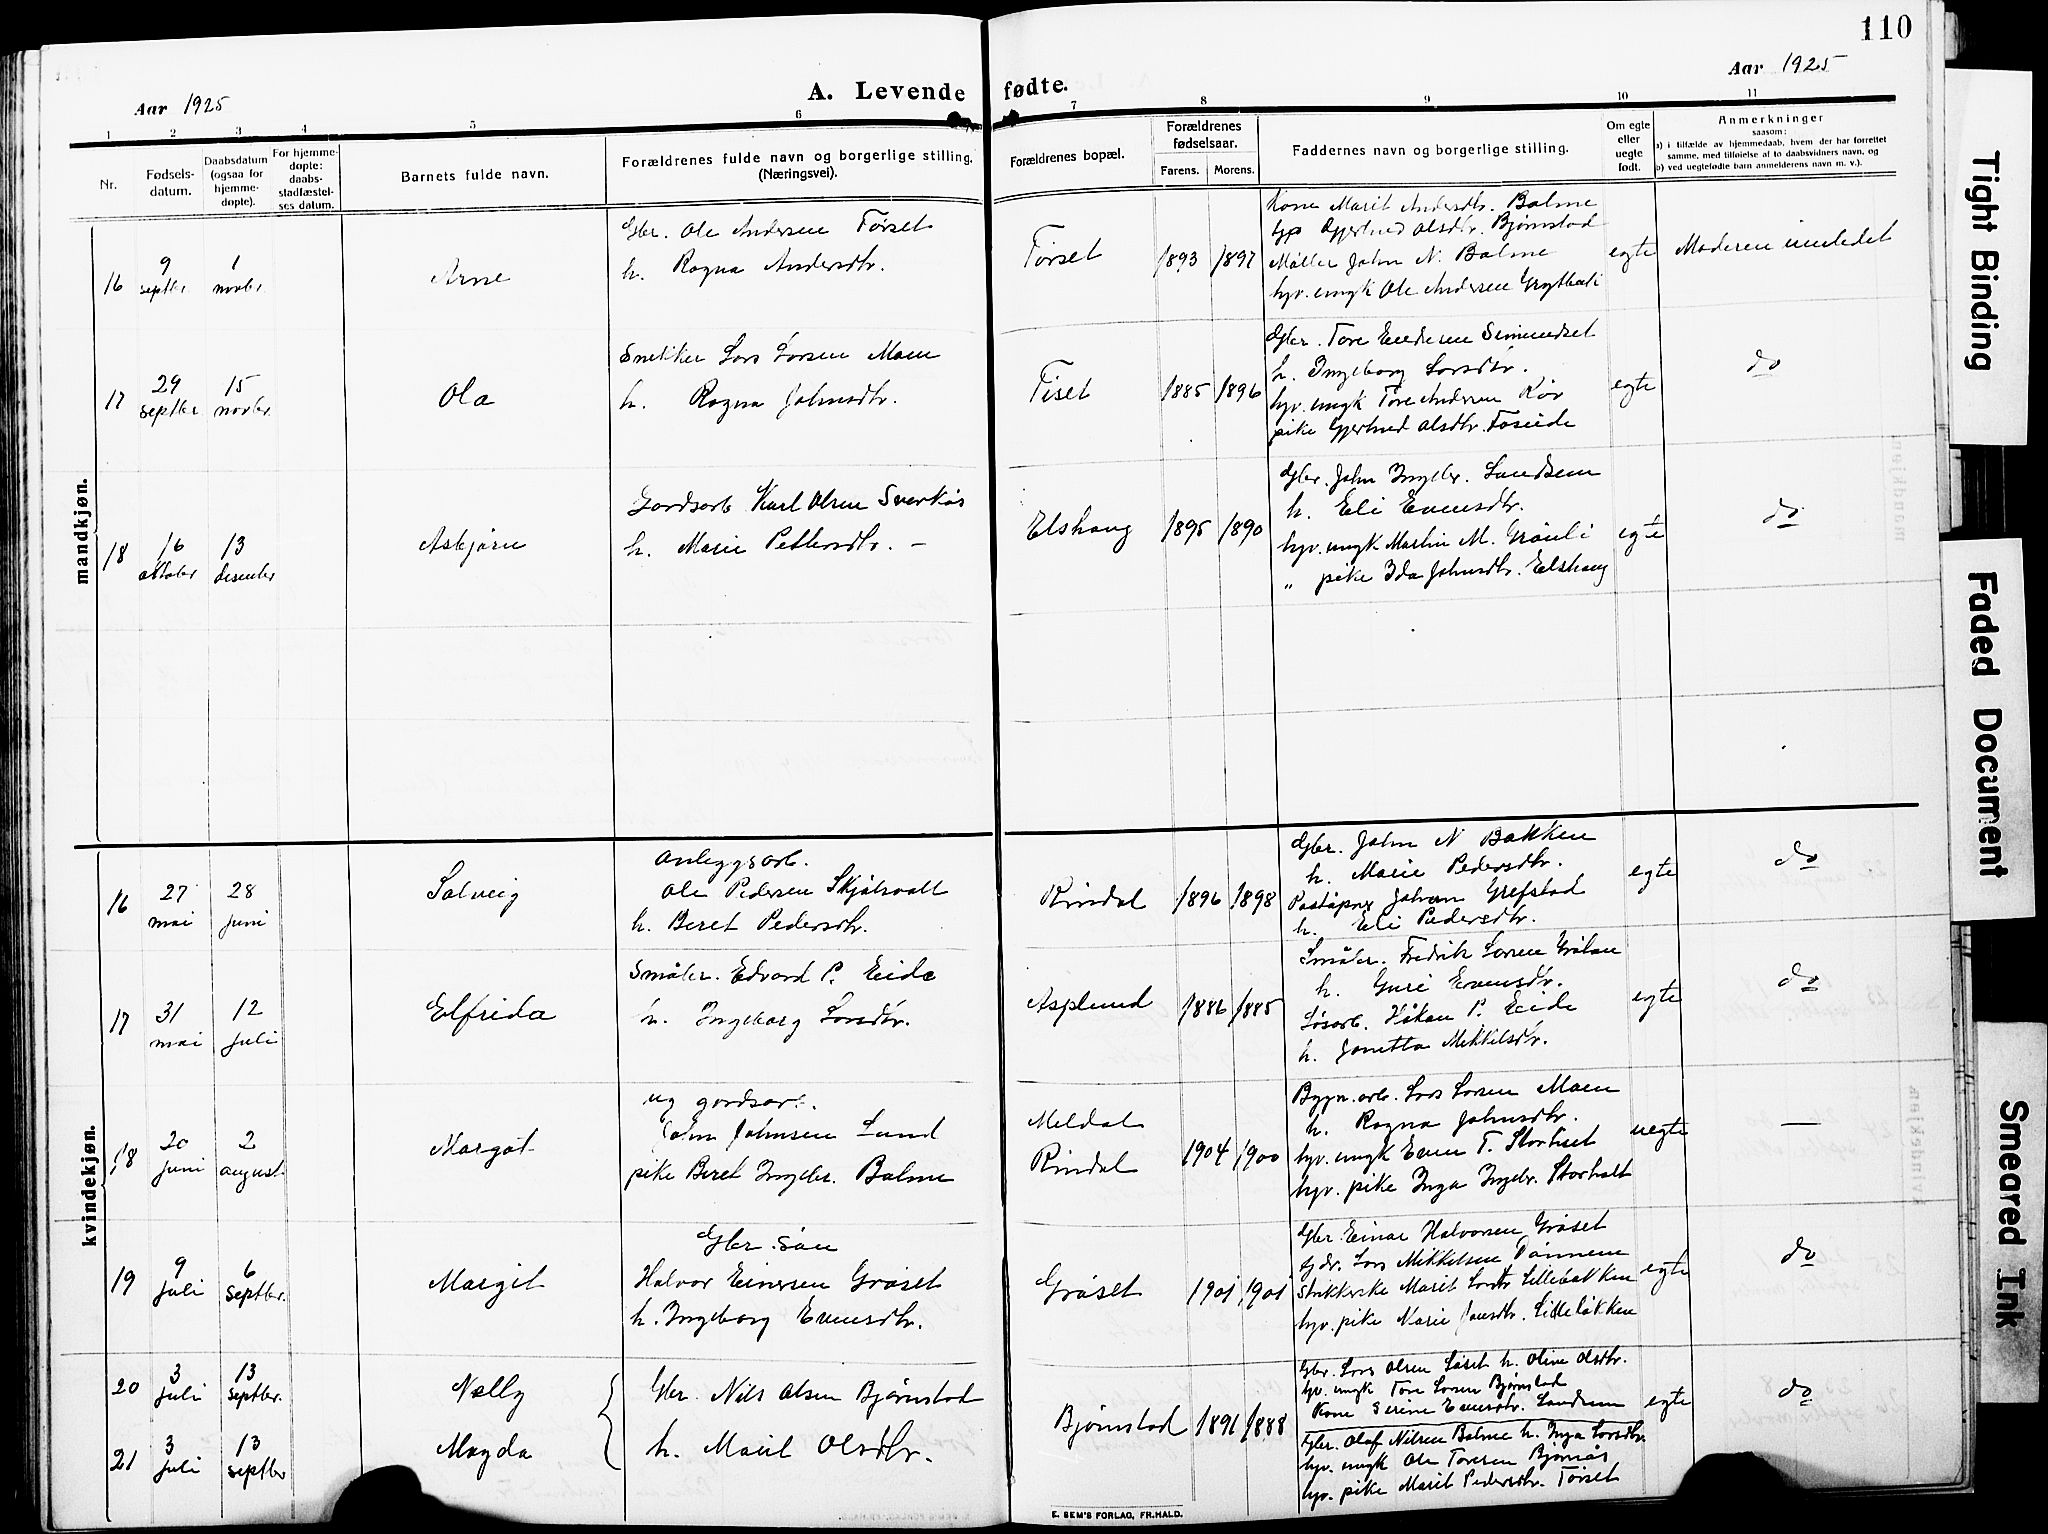 110
Aar 1925
A. Levende fødte.
Aar 1925
1 2 3 4 5 6 7 8 9 10 11
Nr.
Fødsels-
datum.
Daabsdatum
(ogsaa for
hjemme-
døpte).
For hjemme-
døpte:
daabs-
stadfæstel-
ses datum.
Barnets fulde navn.
Forældrenes fulde navn og borgerlige stilling.
(Næringsvei).
Forældrenes bopæl.
Forældrenes
fødselsaar.
Farens. Morens.
Faddernes navn og borgerlige stilling.
Om egte
eller
uegte
født.
Anmerkninger
saasom:
a) i tilfælde av hjemmedaab, hvem der har forrettet
samme, med tilføielse af to daabsvidners navn, og
b) ved uegtefødte barn anmelderens navn m. v.).
mandkjøn.
16
9
septbr
1
novbr
Arne
Gbr. Ole Andersen Tørset
h. Ragna Andersdtr.
Tørset
1893 1897
Kone Marit Andersdtr. Bolme
Gjertrud Olsdtr. Bjørnstad
Møller John N. Bolme
hjv. ungk Ole Andersen
egte
Moderen innledet
17
29
septbr
15
novbr.
Ola
Snekker Lars Larsen Moen
h. Ragna Johnsdtr.
Tiset
1885 1896
Gbr. Tore
h. Ingeborg Larsdtr.
hjv. ungk Tore Andersen
pike Gjertrud Olsdtr.
egte
do
18
16
oktober
13
desember
Asbjørn
Gardsarb Karl Olsen
h. Marie Pettersdtr. –
Elshaug
1895 1890
Gbr. John Ingebr. Landsem
h. Eli Evensdtr.
hjv. ungk Martin M. Grønli
„ pike Ida Johnsdtr. Elshaug
egte
do
kvindekjøn.
16
27
mai
28
juni
Solveig
Anleggsarb.
Ole Pedersen Skjølsvoll
h. Beret Pedersdtr.
Rindal
1896 1898
Gbr. John N Bakken
h. Marie Pedersdtr.
Poståpner Johan Grefstad
h. Eli Pedersdtr.
egte
do
17
31
mai
12
juli
Elfrida
Småbr. Edvard P. Eide
h. Ingeborg Larsdtr.
Asplund
1886 1885
Småbr. Fredrik Larsen
h. Guri Evensdtr.
Løsarb. Håkan P. Eide
h. Janetta Mikkelsdtr.
egte
do
18
20
juni
2
august
Margot
ug gardsarb.
John Johnsen Lund
pike Beret Ingebr. Bolme
Meldal
Rindal
1904 1900
Bygn.arb. Lars Larsen Moen
h. Ragna Johnsdtr.
hjv. ungk Even T. Stortiset
hjv. pike Inga Ingebr. Storholt
uegte
—
19
9
juli
6
septbr.
Margit
Gbr. søn
Halvor Einersen Grøset
h. Ingeborg Evensdtr.
Grøset
1901 1901
Gbr. Einar Halvorsen Grøset
Lars Mikkelsen
Marit Larsdtr Lillebakken
hjv. pike Marie Jonsdtr. Lilleløkken
egte
do
20
3
juli
13
septbr.
Nelly
21
3
juli
13
septbr
Magda
Gbr. Nils Olsen Bjørnstad
h. Marit Olsdtr.
Bjørnstad
1891 1888
Gbr. Lars Olsen Løset h. Oline Olsdtr.
hjv. ungk Tore Larsen Bjørnstad
Kone Serine Evensdtr. Landsem
Gbr. Olaf Nilsen Bolme h. Inga Larsdtr.
hjv. ungk Ole Toresen Bjørnås
hjv. pike Marit Pedersdtr. Tørset
egte
do
E. SEM'S FORLAG, FR.HALD.
Tight Binding
Faded Document
Smeared Ink